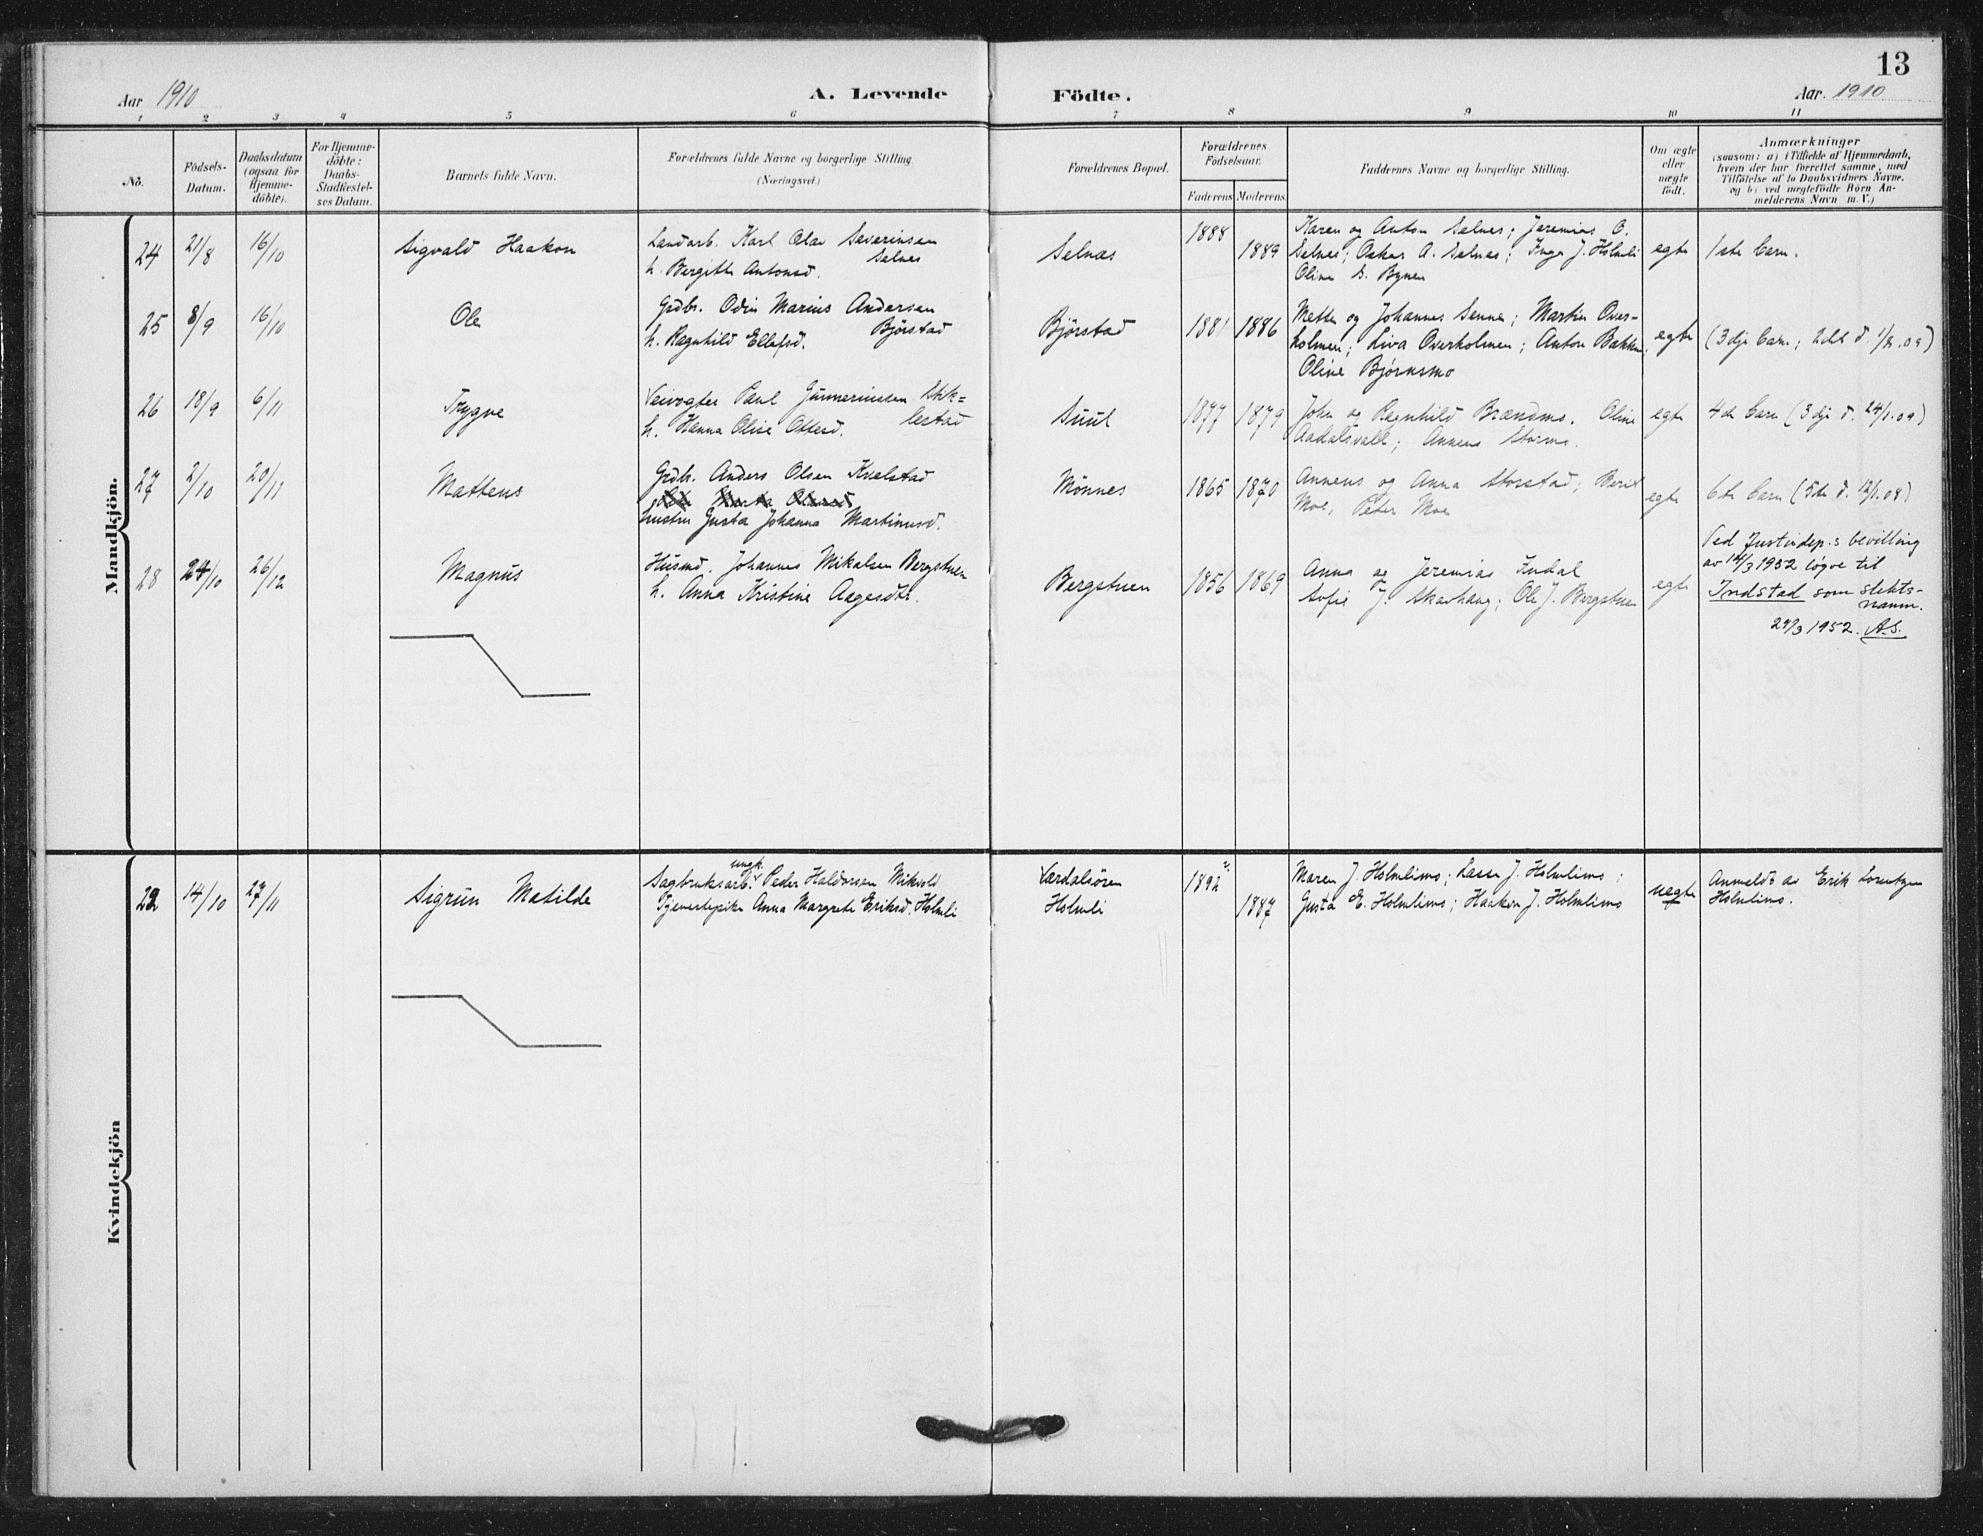 13
Aar 1910 A. Levende Födte. Aar. 1910
1 2 3 4 5 6 7 8 9 10 11
No.
Födsels-
Datum.
Daabsdatum
(ogsaa för
Hjemme-
döbte).
For Hjemme-
döbte:
Daabs-
Stadfæstel-
ses Datum.
Barnets fulde Navn.
Forældrenes fulde Navne og borgerlige Stilling.
(Næringsvei.)
Forældrenes Bopæl.
Forældrenes
Födselsaar.
Faderens Moderens
Faddernes Navne og borgerlige Stilling.
Om ægte
eller
uægte
födt.
Anmærkninger
(saasom: a) i Tilfælde af Hjemmedaab,
hvem der har forrettet samme, med
Tilföielse af to Daabsvidners Navne,
og b) ved uægtefödte Börn An-
melderens Navn m. V.)
Mandkjön.
24 21/8 16/10 Sigvald Haakon
Landarb. Karl Olav Severinsen
Selnes
h. Bergitte Antonsd.
Selnæs
1888 1889
Karen og Anton Selnes; Jeremias O.
Selnes; Oskar A. Selnes; Inga J. Holmli
Oline S. Bynen
egte
1ste barn.
25 8/9 16/10 Ole
Grdbr. Odin Marius Andersen
Bjørstad
h. Ragnhild Ellefsd.
Bjørstad
1881 1886
Mette og Johannes Senne; Martin Over-
holmen; Liva Overholmen; Anton Bakken;
Oline Bjørnsmo
egte
(3dje barn; 2det d. 1/8.09)
26 18/9 6/11 Trygve
Veivogter Paul Gunneriussen Stik-
lestad
h. Hanna Olise Ottersd.
Suul
1877 1879
John og Ragnhild Brændmo. Oline
Aadalsvold; Anneus Stormo.
egte
4de barn (3dje d. 24/1.09)
27 2/10 20/11 Matteus
Grdbr. Anders Olsen Kvelstad
hustru Gusta Johanna Martinusd.
Mönnes
1865 1870
Anneus og Anna Storstad; Berit
Moe, Peter Moe
egte
6te barn (5te d. 12/1.08)
28 24/10 26/12 Magnus
Husmd. Johannes Mikalsen Bergstuen
h. Anna Kristine Aagesdtr.
Bergstuen
1856 1869
Anna og Jeremias Indal
Sofie J. Skavhaug; Ole J. Bergstuen
egte
Ved Justisdep.s bevilling
av 14/3 1952 løyve til
Indstad som slekts-
namn.
29/3 1952. A.S.
Kvindekjön
22 14/10 27/11 Sigrun Matilde
ungk.
Sagbruksarb. Peder Haldorsen Mikvold
Tjenestepike Anna Margrete Eriksd. Holmli
Værdalsören
Holmli
1892 1887
Maren J. Holmlimo; Lasse J. Holmlimo;
Gusta E. Holmlimo; Haakon J. Holmlimo
uegte
Anmeldt av Erik Lorntsen
Holmlimo.